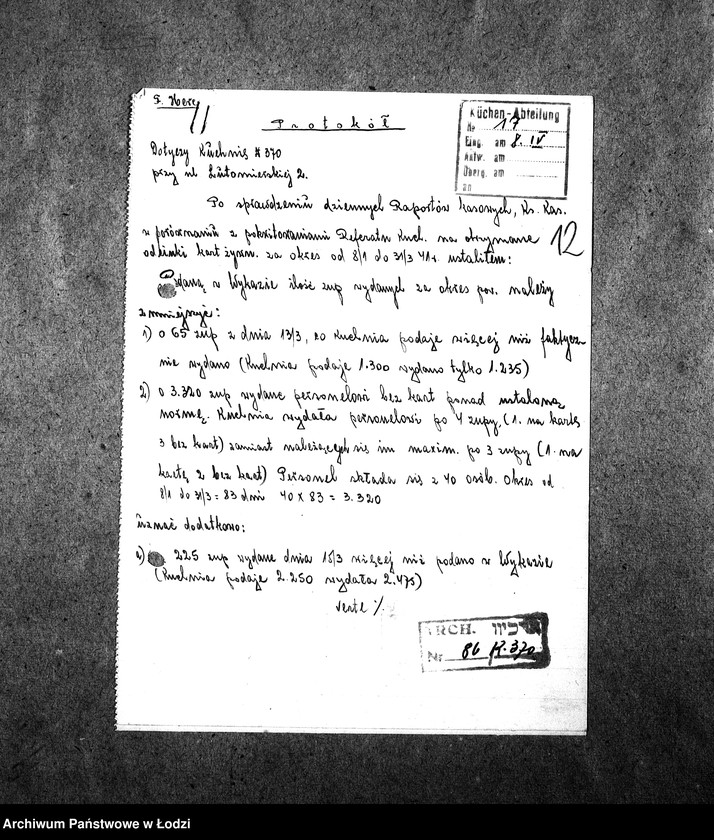 P. Herc
11
Protokół
Küchen-Abteilung
Nr 17
Eing. am 8. IV
Antw. am
Überg. am
an
Dotyczy Kuchnię # 370
przy ul. Lutomierskiej 2.
Po sprawdzeniu dziennych Raportów kasowych, Ks. Kas.
w porównaniu z pokwitowaniami Referatu Kuch. na otrzymane
12
odcinki kart żywn. za okres od 8/1 do 31/3 41r. ustaliłem:
Podaną w Wykazie ilość zup wydanych za okres pow. należy
zmniejszyć:
1) o 65 zup z dnia 13/3, co Kuchnia podaje więcej niż faktycz-
nie wydano (Kuchnia podaje 1.300 wydano tylko 1.235)
2) o 3.320 zup wydane personelowi bez kart ponad ustaloną
normę. Kuchnia wydała personelowi po 4 zupy, (1. na kartę
3 bez kart) zamiast należących się im maxim. po 3 zupy (1. na
kartę 2 bez kart) Personel składa się z 40 osób. Okres od
8/1 do 31/3 = 83 dni 40 x 83 = 3.320
uznać dodatkowo:
a) 225 zup wydane dnia 15/3 więcej niż podano w Wykazie
(Kuchnia podaje 2.250 wydała 2.475)
verte %
ARCH. ארכיוו
Nr. 86 K. 370
Archiwum Państwowe w Łodzi